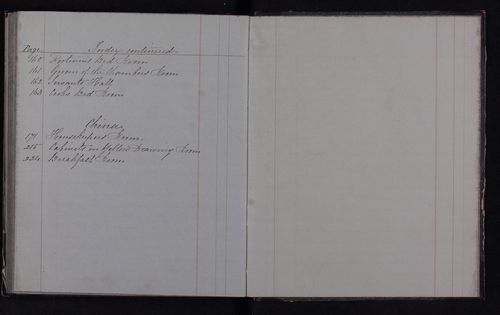 Page Index continued.
160 Bed Room
161 Groom of the Chambers Room
162 Servants Hall
163 Cooks Bed Room
China
171 Housekeepers Room
215 Cabinets in Yellow Drawing Room
224 Breakfast Room